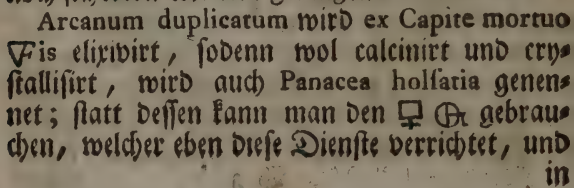 Arcanum duplicatum wird ex Capite mortuo
🜅is elixivirt, ſodenn wol calcinirt und cry⸗
ſtalliſirt, wird auch Panacea holſatia genen⸗
net; ſtatt deſſen kann man den 🜿 🜖 gebrau⸗
chen, welcher eben dieſe Dienſte verrichtet, und
in